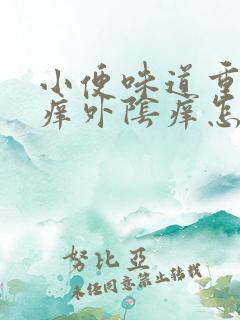 小便味道重
痒外陰痒怎
努比亞
未任同意第止转载